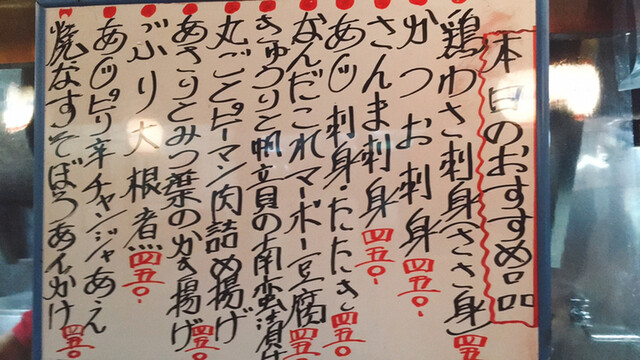 本日のおすすめ品
鶏わさ刺身(ささ身)四五
かつお刺身四五〇.
さんま刺身四五〇.
あじ刺身・たたき四五〇
なんだこれマーボー豆腐四五
きゅうりと帆立貝の南蛮漬け
丸ごとピーマン肉詰め揚げ四五
あさりとみつ葉のかき揚げ四五〇
ぶり大根煮四五〇.
あじピリ辛チャンジャあえ
焼なすそぼろあんかけ四五〇